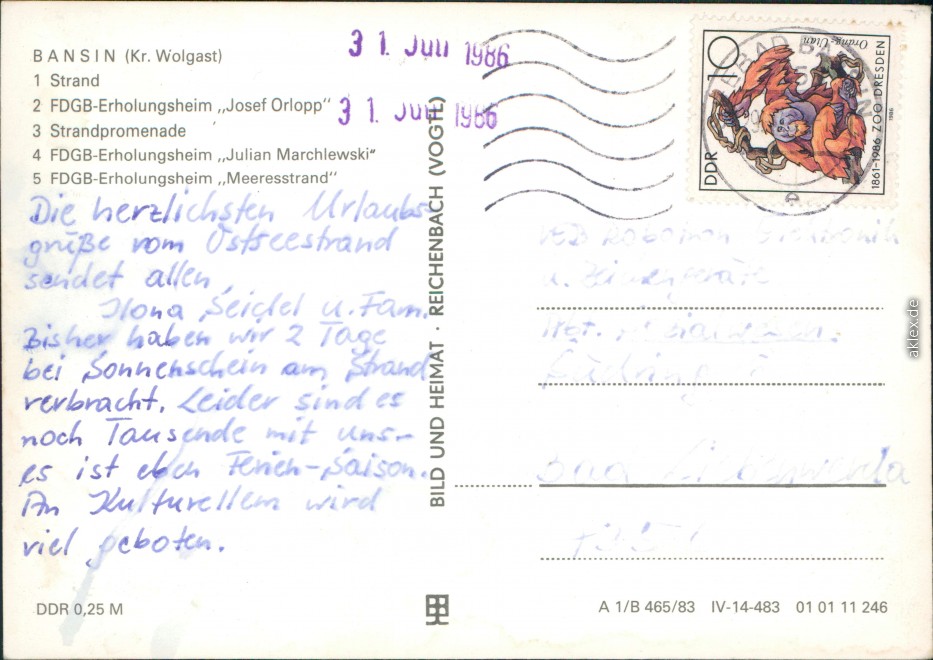 BANSIN (Kr. Wolgast)
1 Strand
2 FDGB-Erholungsheim „Josef Orlopp"
3 Strandpromenade
4 FDGB-Erholungsheim „Julian Marchlewski"
5 FDGB-Erholungsheim „Meeresstrand"
31. Juli 1986
31. Juli 1986
Die herzlichsten Urlaubs-
grüße vom Ostseestrand
sendet allen
Ilona Seidel u. Fam.
Bisher haben wir 2 Tage
bei Sonnenschein am Strand
verbracht. Leider sind es
noch Tausende mit uns-
es ist eben Ferien-Saison.
An Kulturellem wird
viel geboten.
DDR 0,25 M
BILD UND HEIMAT · REICHENBACH (VOGTL)
10
Orang-Utan
DDR
1861-1986 ZOO DRESDEN
1986
SEEBAD BANSIN
e
VEB Robotron Elektronik
Bad Liebenwerda
A 1/B 465/83 IV-14-483 01 01 11 246
aklex.de